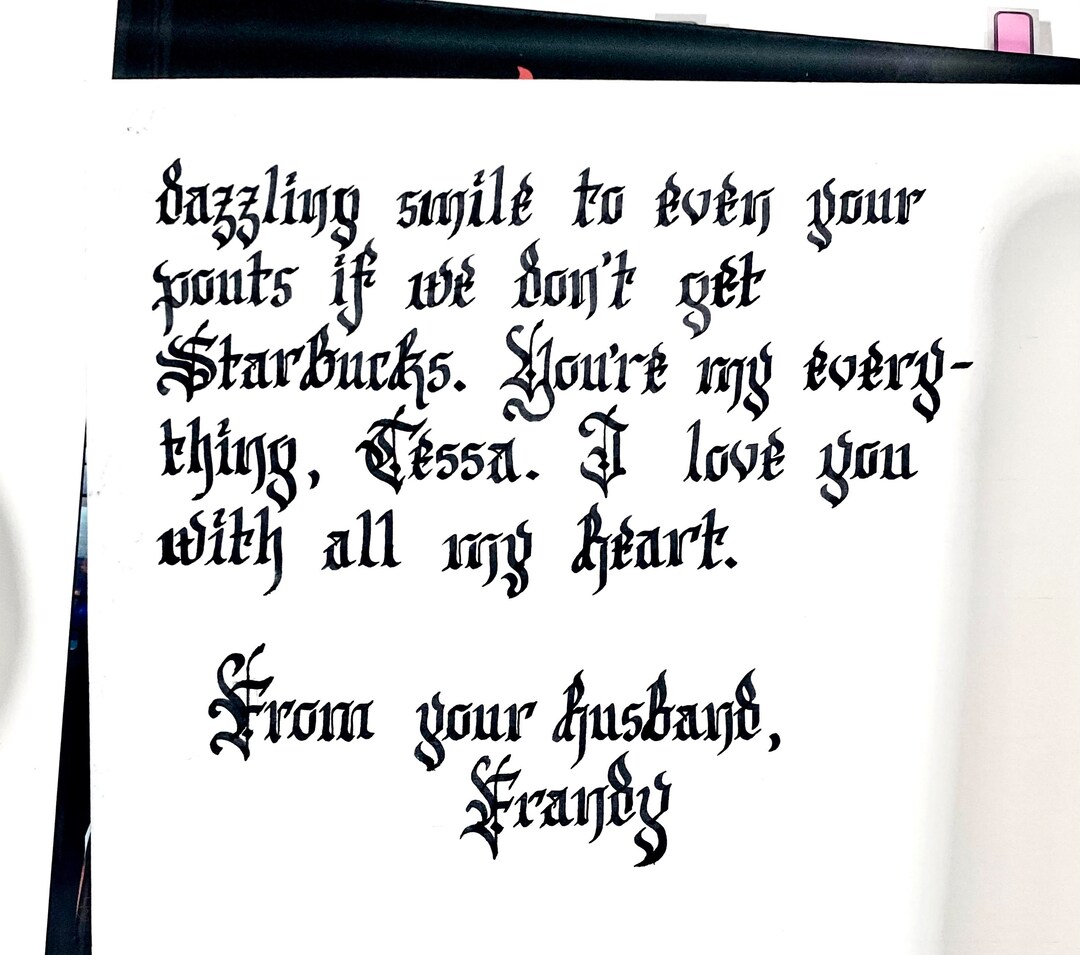 dazzling smile to even your
pouts if we don't get
Starbucks. You're my every-
thing, Tessa. I love you
with all my heart.
From your husband,
Frandy